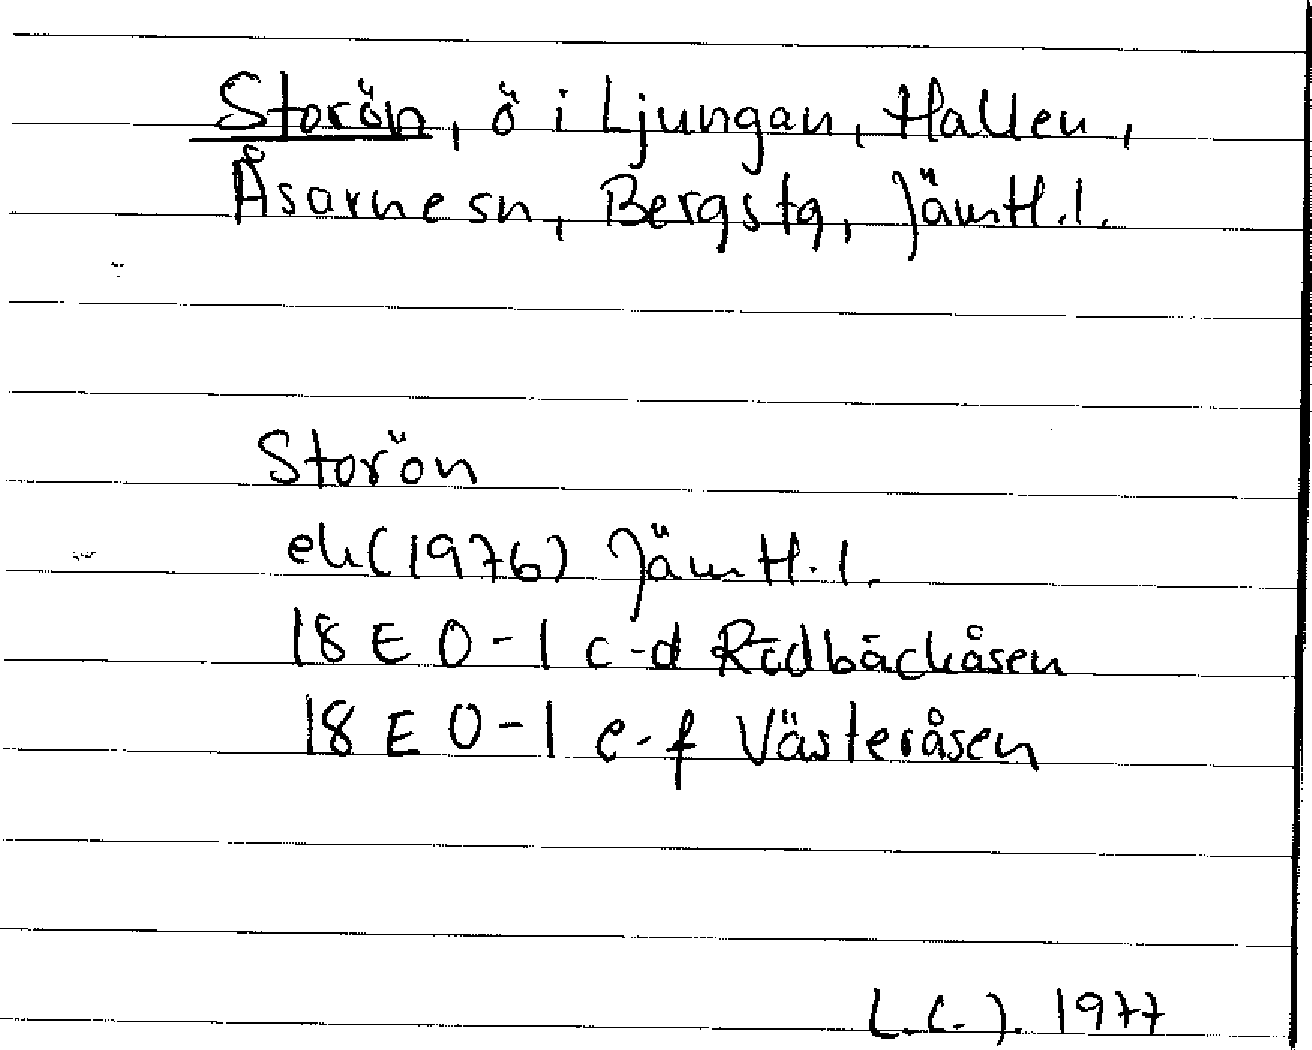 Storön, ö i Ljungan, Hallen,
Åsarne sn, Bergs tg, Jämtl. l.
Storön
ek (1976) Jämtl. l.
18 E 0-1 c-d Rödbäckåsen
18 E 0-1 e-f Västeråsen
L.C.J. 1977